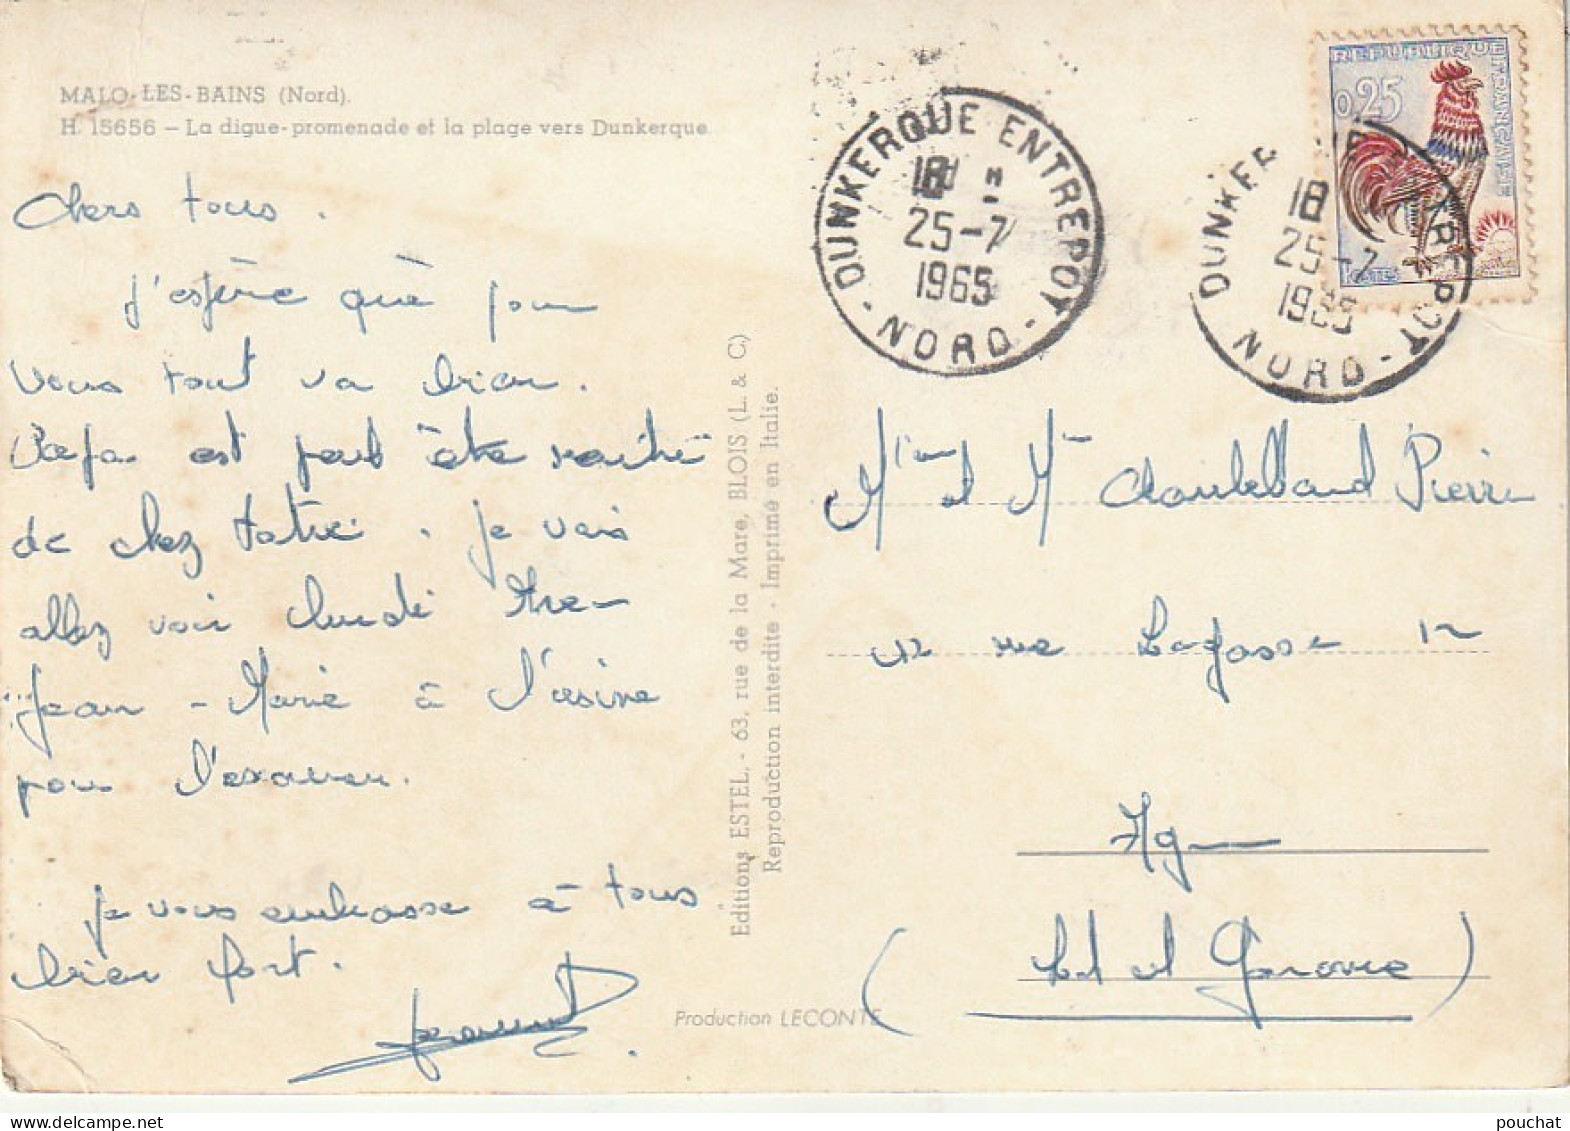 MALO-LES-BAINS (Nord).
H. 15656 – La digue-promenade et la plage vers Dunkerque
Chers tous.
J'espère que pour
vous tout va bien.
Papa est peut être rentré
de chez             . Je vais
allez voir Lundi
Jean-Marie à l'usine
pour l'examen.
Je vous embrasse à tous
bien fort.
Editions ESTEL, - 63, rue de la Mare, BLOIS (L. & C.)
Reproduction interdite - Imprimé en Italie.
Production LECONTE
DUNKERQUE ENTREPOT
18
25-7
1965
- NORD -
REPUBLIQUE FRANÇAISE
0,25
POSTES
18
25-7
1965
NORD -
et        Pierre
12 rue Lagasse 12
Agen
(Lot et Garonne)
pouchat